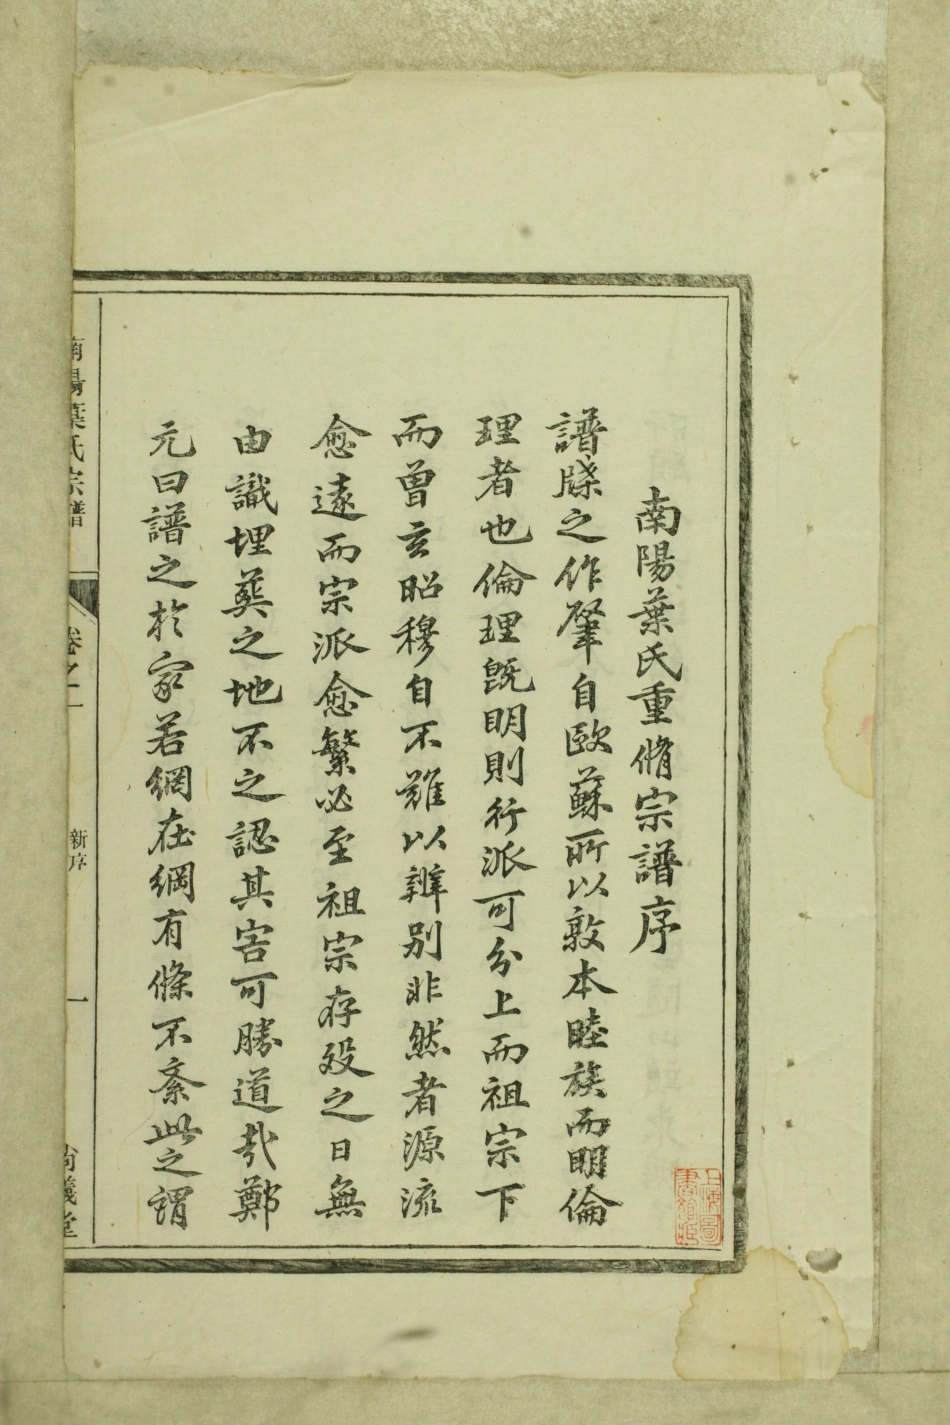 南陽葉氏重脩宗譜序
譜牒之作肇自歐蘇所以敦本睦族而明倫
理者也倫理既明則行派可分上而祖宗下
而曾玄昭穆自不難以辨别非然者源流
愈遠而宗派愈繁必至祖宗存歿之日無
由識埋葬之地不之認其害可勝道哉鄭
元曰譜之於家若網在綱有條不紊此之謂
南陽葉氏宗譜
卷之一
新序
一
尚義堂